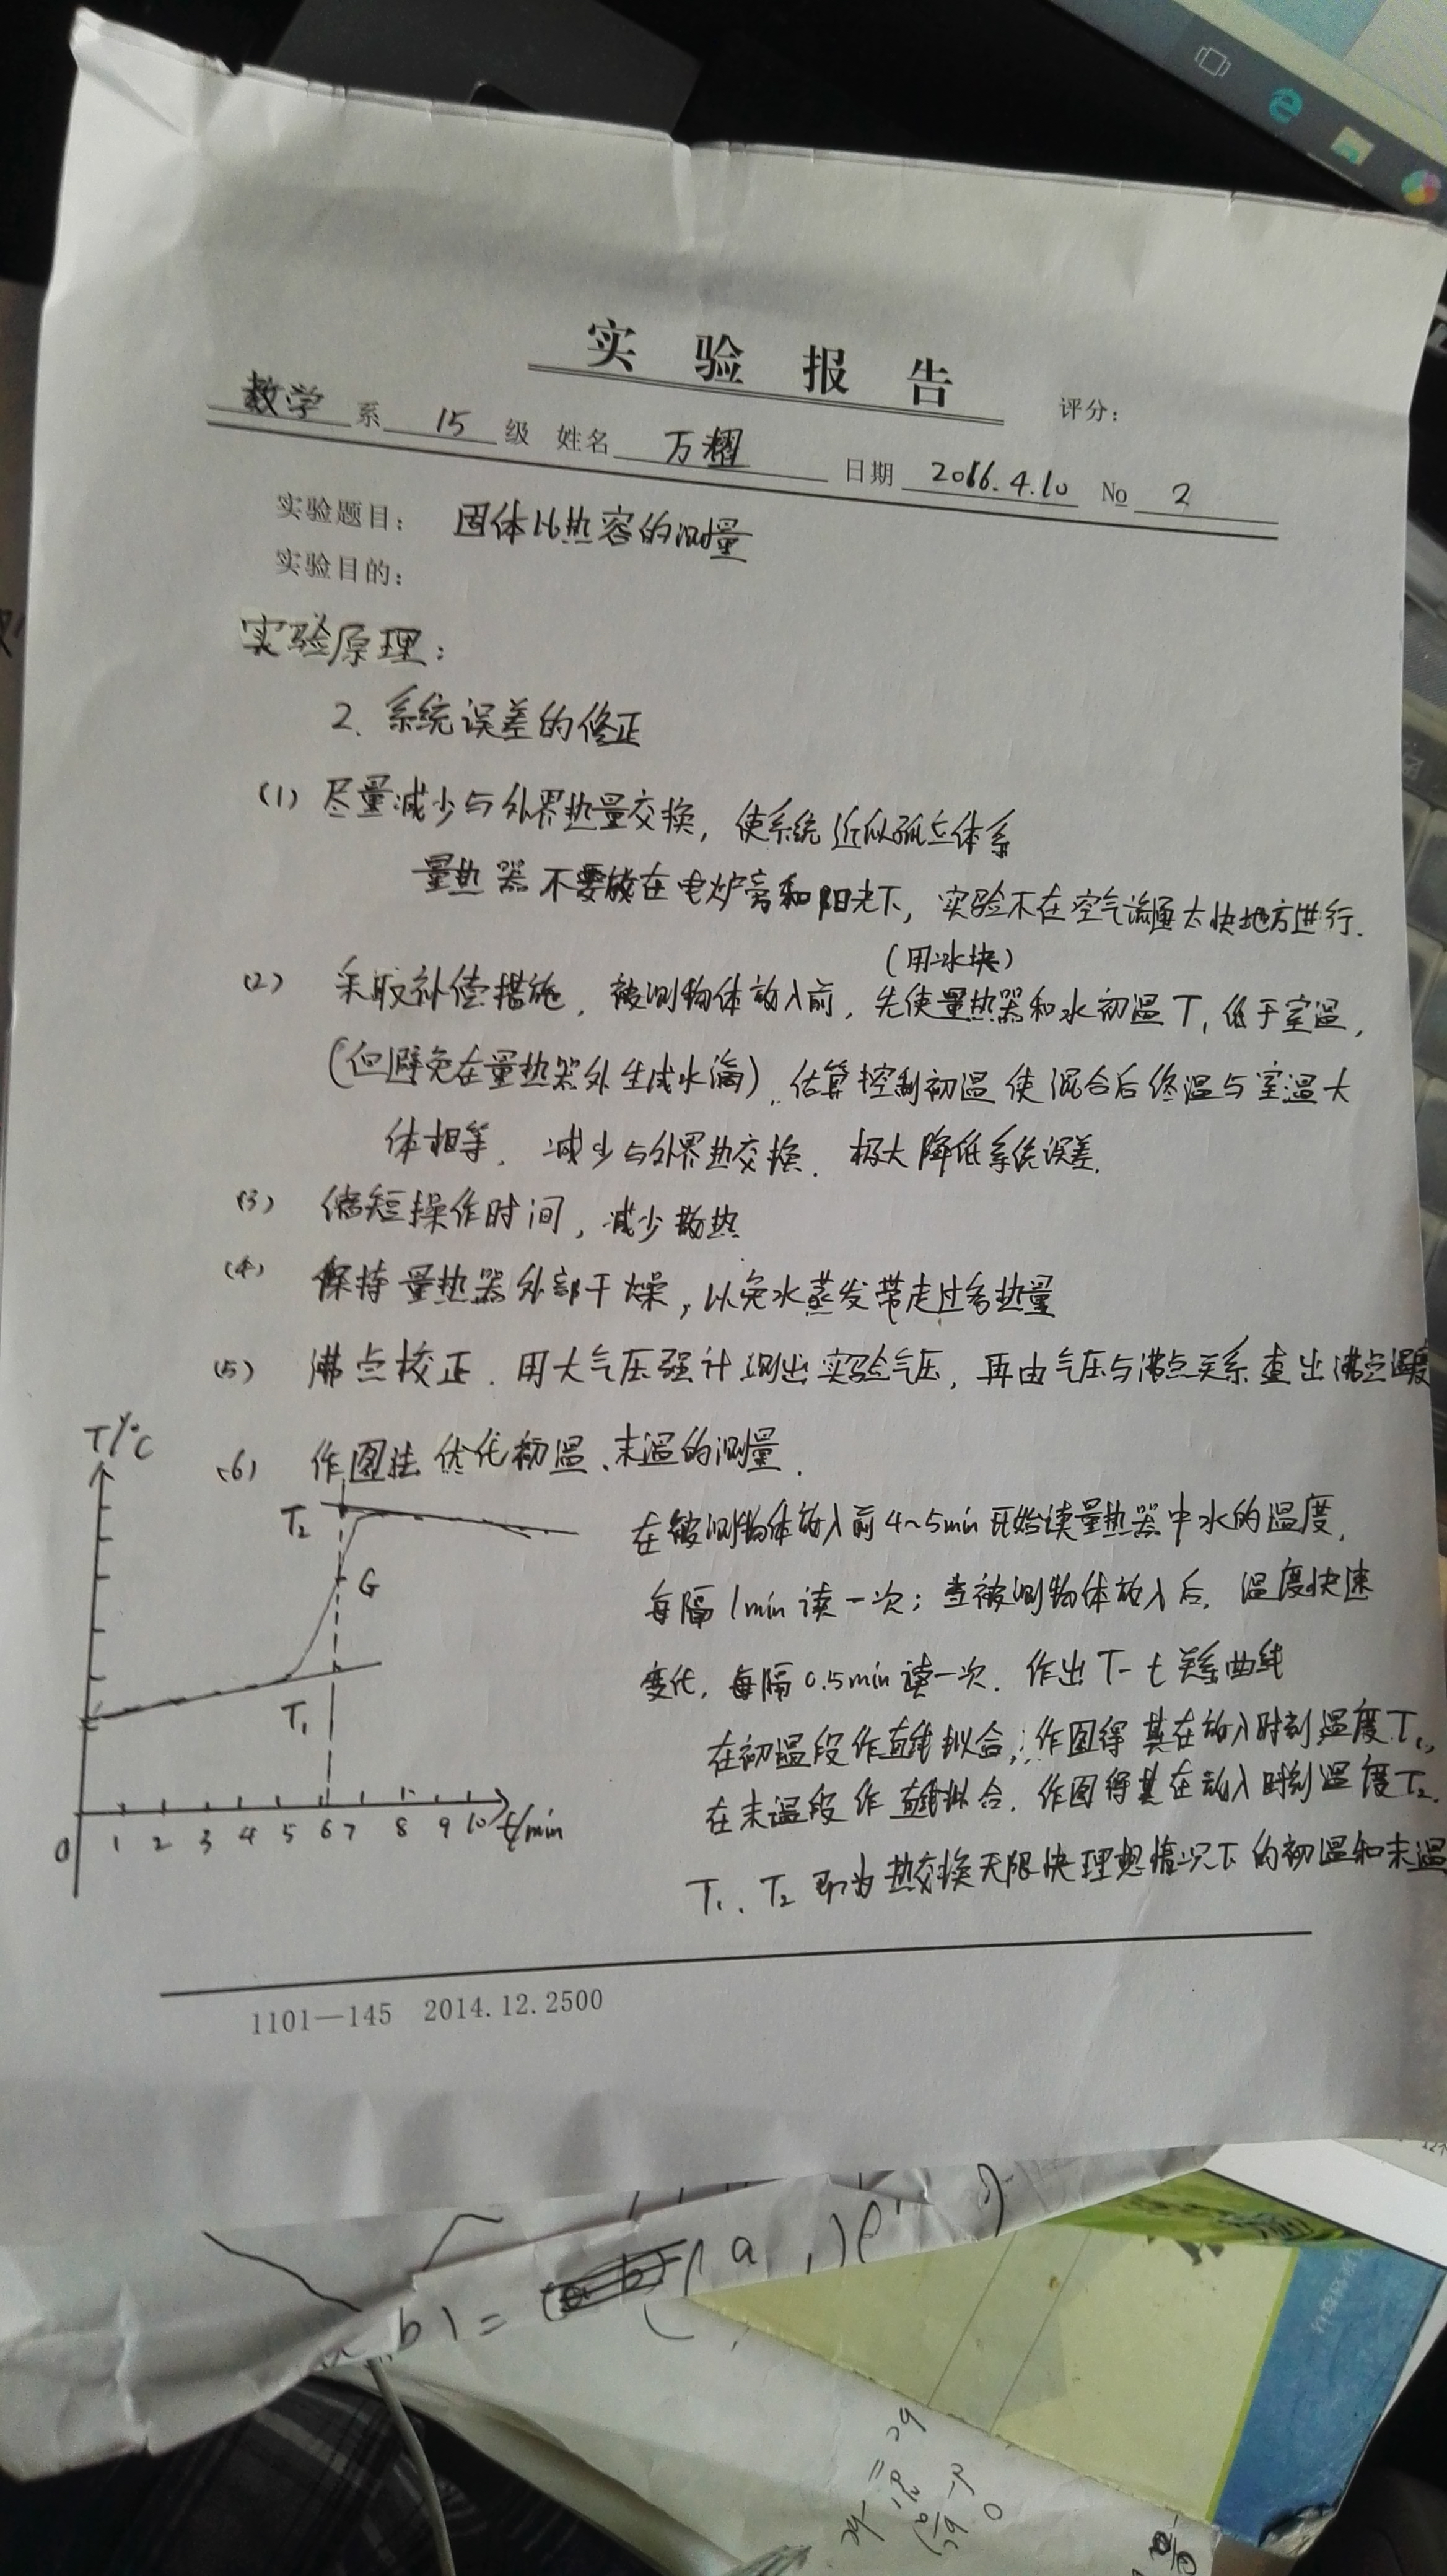 实验报告
评分：
数学 系 15 级 姓名 万耀 日期 2016.4.10 № 2
实验题目： 固体比热容的测量
实验目的：
实验原理：
2. 系统误差的修正
(1) 尽量减少与外界热量交换，使系统近似孤立体系
量热器不要放在电炉旁和阳光下，实验不在空气流通太快地方进行.
(用冰块)
(2) 采取补偿措施，被测物体放入前，先使量热器和水初温T₁低于室温，
(但避免在量热器外生成水滴)，估算控制初温使混合后终温与室温大
体相等，减少与外界热交换，极大降低系统误差.
(3) 缩短操作时间，减少散热
(4) 保持量热器外部干燥，以免水蒸发带走过多热量
(5) 沸点校正，用大气压强计测出实验气压，再由气压与沸点关系查出沸点温度
(6) 作图法优化初温、末温的测量.
在被测物体放入前4~5min开始读量热器中水的温度，
每隔1min读一次；当被测物体放入后，温度快速
变化，每隔0.5min读一次. 作出T-t关系曲线
在初温段作直线拟合，作图得其在放入时刻温度T₁，
在末温段作直线拟合，作图得其在放入时刻温度T₂.
T₁、T₂即为热交换无限快理想情况下的初温和末温
T/℃
T₂
G
T₁
0 1 2 3 4 5 6 7 8 9 10 t/min
1101—145 2014.12.2500
b) =
a